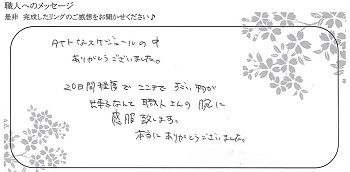 職人へのメッセージ
是非 完成したリングのご感想をお聞かせください♪
タイトなスケジュールの中
ありがとうございました。
20日間程度で ここまで すごい 物が
出来るなんて 職人さんの 腕に
感服 致します。
本当に ありがとうございました。